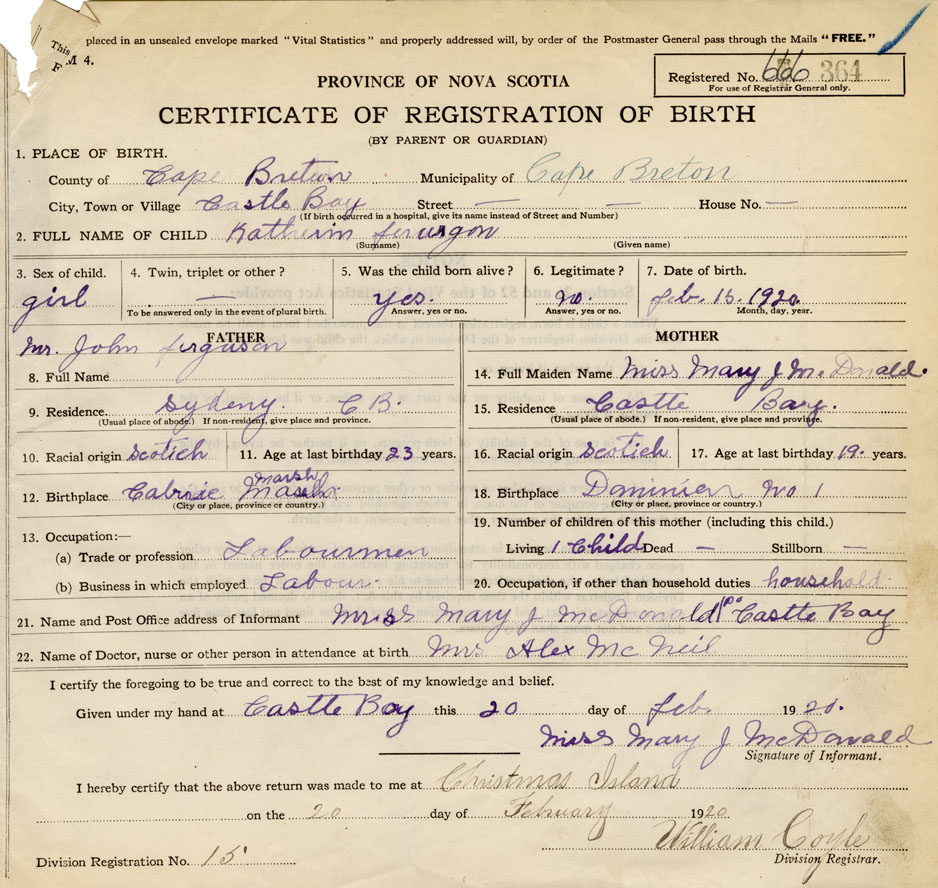 This placed in an unsealed envelope marked "Vital Statistics" and properly addressed will, by order of the Postmaster General pass through the Mails "FREE."
F M 4.
PROVINCE OF NOVA SCOTIA
Registered No. 666 364
For use of Registrar General only.
CERTIFICATE OF REGISTRATION OF BIRTH
(BY PARENT OR GUARDIAN)
1. PLACE OF BIRTH.
County of Cape Breton Municipality of Cape Breton
City, Town or Village Castle Bay Street — — House No. —
(If birth occurred in a hospital, give its name instead of Street and Number)
2. FULL NAME OF CHILD Katherin
(Surname) (Given name)
3. Sex of child. 4. Twin, triplet or other? 5. Was the child born alive? 6. Legitimate? 7. Date of birth.
girl — yes. no. feb. 15. 1920
To be answered only in the event of plural birth. Answer, yes or no. Answer, yes or no. Month, day, year.
FATHER MOTHER
Mr. John ferguson
8. Full Name 14. Full Maiden Name Miss Mary J McDonald.
9. Residence Sydeny. C B. 15. Residence Castle Bay.
(Usual place of abode.) If non-resident, give place and province. (Usual place of abode.) If non-resident, give place and province.
10. Racial origin Scotich 11. Age at last birthday 23 years. 16. Racial origin Scotich 17. Age at last birthday 19. years.
Marsh
12. Birthplace 18. Birthplace Dominion No 1
(City or place, province or country.) (City or place, province or country.)
13. Occupation:— 19. Number of children of this mother (including this child.)
(a) Trade or profession Labourmen Living 1 Child Dead — Stillborn —
(b) Business in which employed Labour 20. Occupation, if other than household duties household
21. Name and Post Office address of Informant Miss Mary J McDonald Po Castle Bay
22. Name of Doctor, nurse or other person in attendance at birth Mrs Alex Mc Neil
I certify the foregoing to be true and correct to the best of my knowledge and belief.
Given under my hand at Castle Bay this 20 day of feb. 1920.
Miss Mary J McDonald
Signature of Informant.
I hereby certify that the above return was made to me at Christmas Island
on the 20 day of February 1920
William Coyle
Division Registrar.
Division Registration No. 15